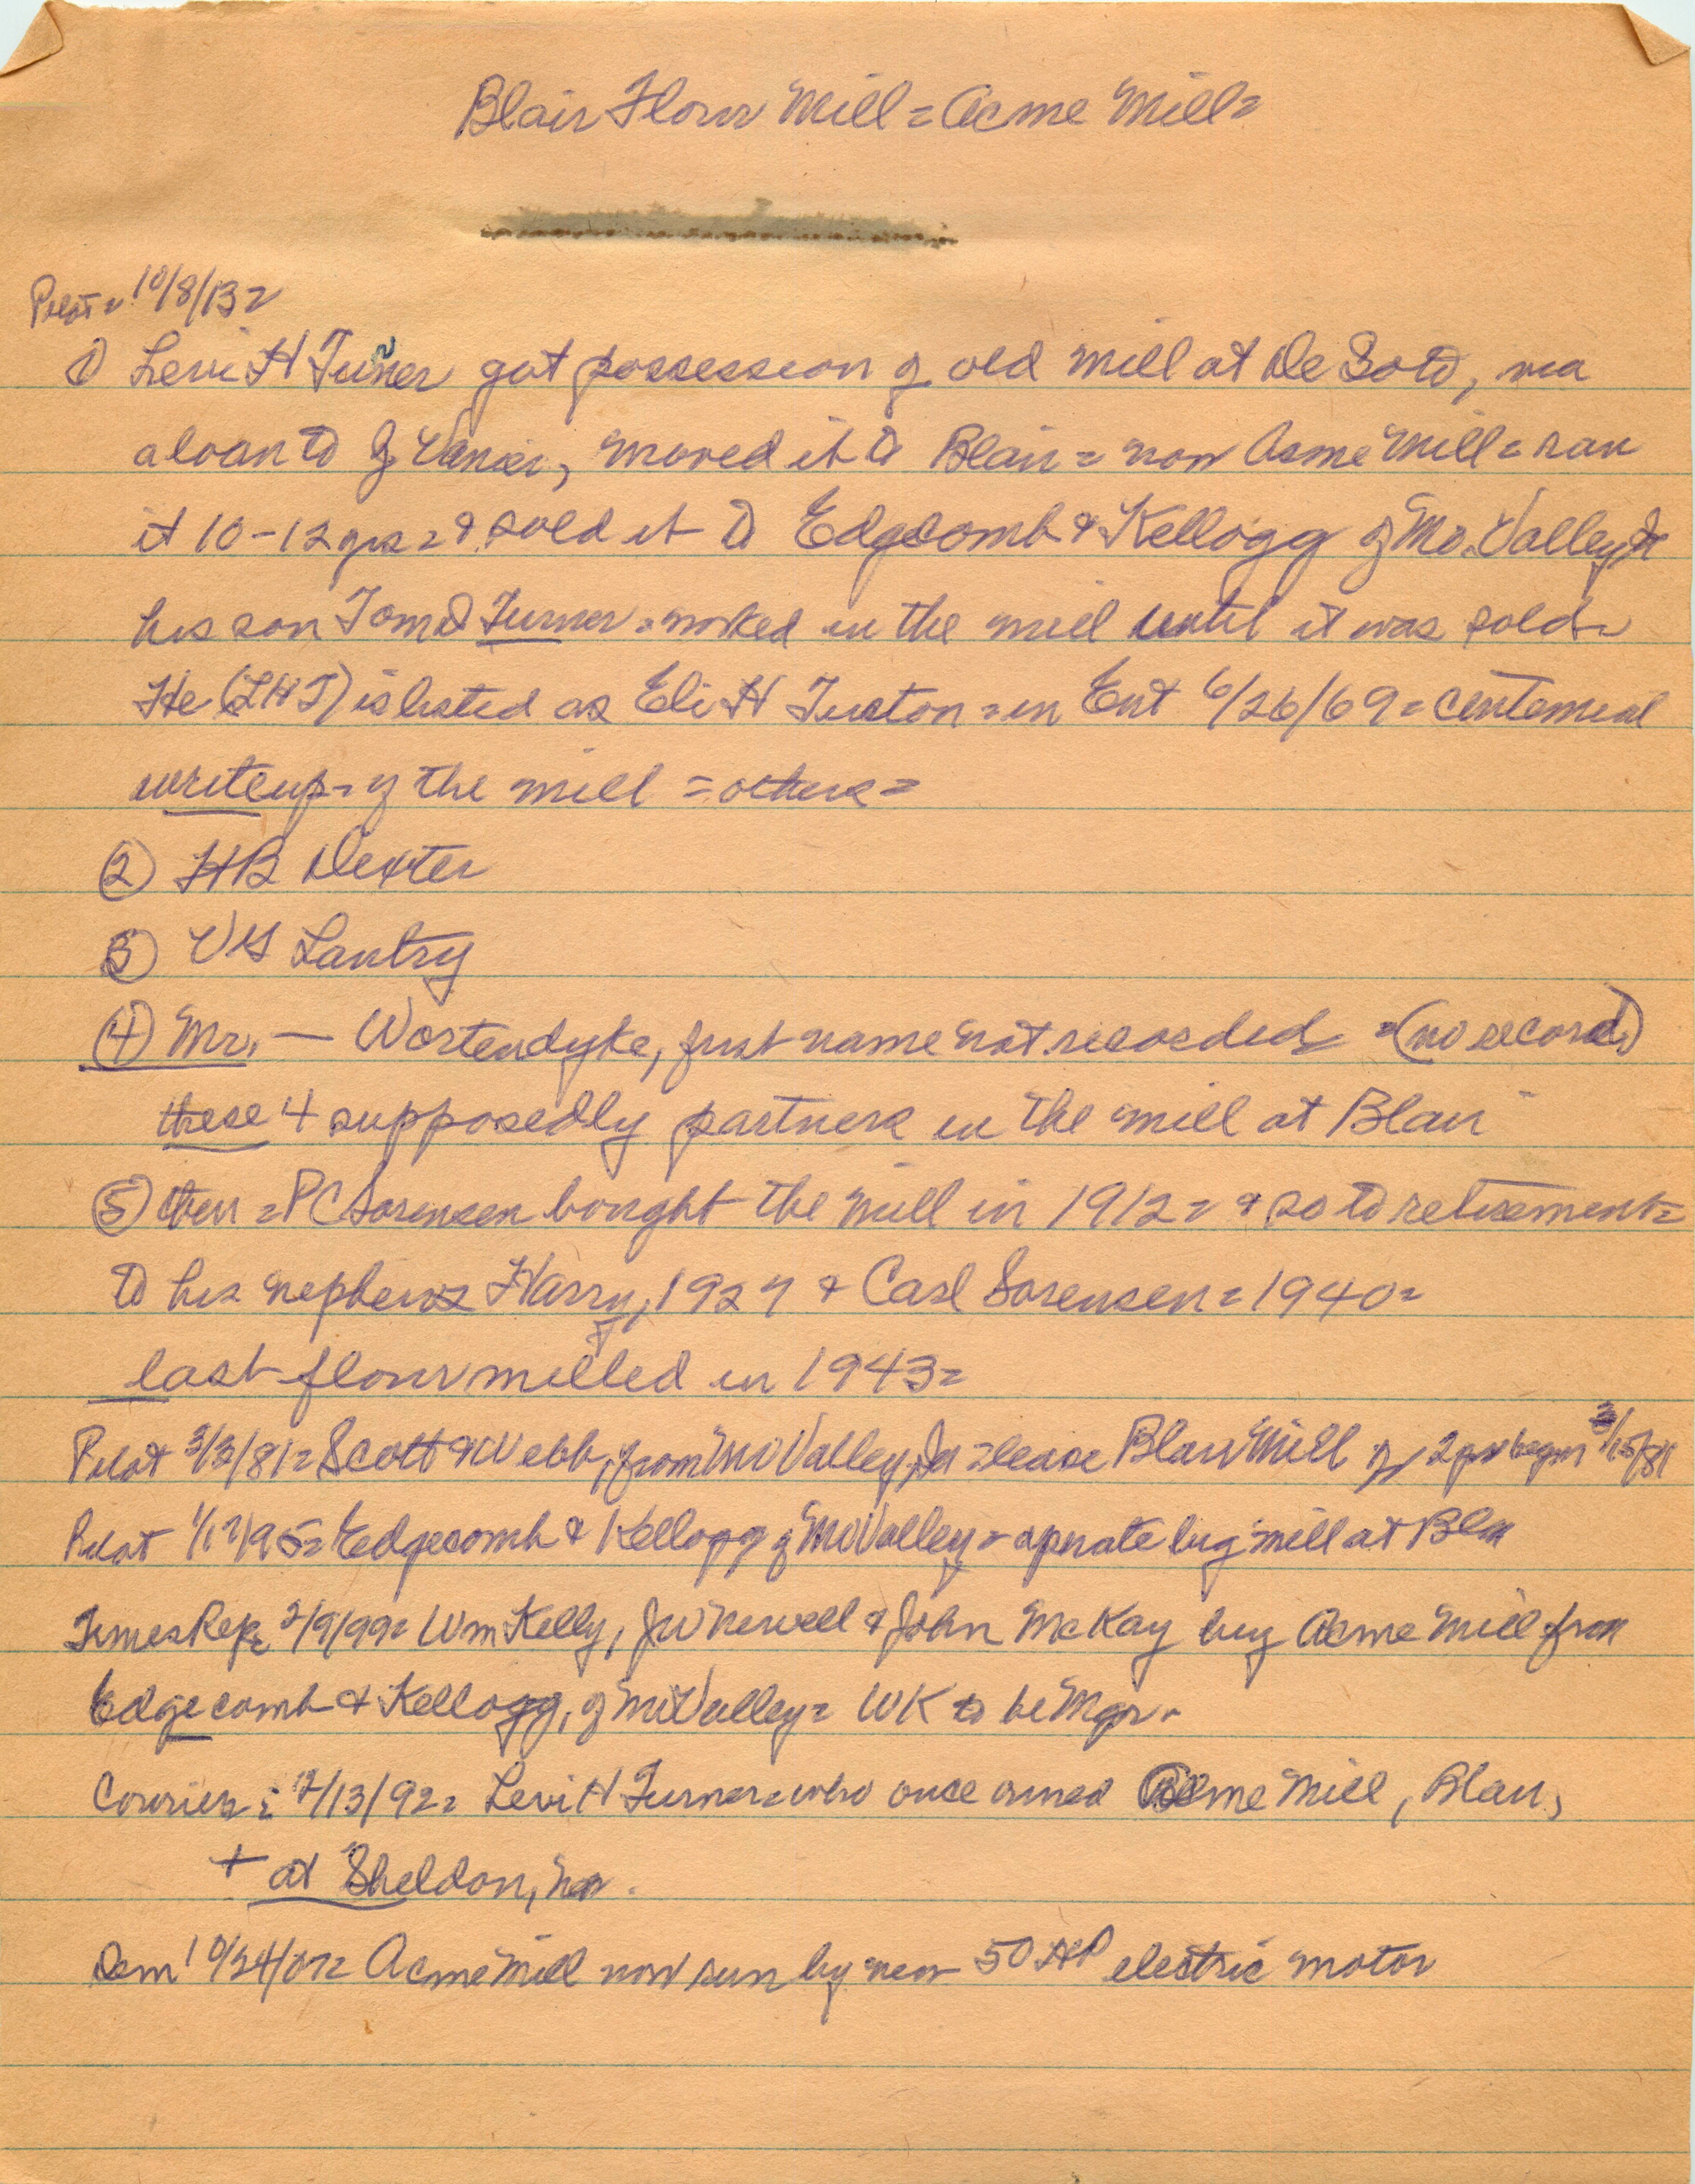 Blair Flour Mill = Acme Mill =
Pilot = 10/8/13 =
1) Levi H Turner got possession of old mill at De Soto, via
a loan to J. Vanier, moved it to Blair = now Acme Mill = ran
it 10-12 yrs = & sold it to Edgecomb & Kellogg of Mo. Valley Ia
his son Tom D Turner = worked in the mill until it was sold =
He (LHT) is listed as Eli H Turton = in Ent 6/26/69 = centennial
writeup = of the mill = others =
(2) HB Dexter
(3) VG Lantry
(4) Mr. — Wortendyke, first name not recorded = (no record)
these 4 supposedly partners in the mill at Blair
(5) then = PC Sorensen bought the mill in 1912 = & so to retirement =
to his nephews Harry, 1927 & Carl Sorensen = 1940 =
last flour milled in 1943 =
Pilot 3/3/81 = Scott & Webb, from Mo Valley, Ia = lease Blair Mill for 2 yrs begin 3/15/81
Pilot 1/17/95 = Edgecomb & Kellogg of Mo Valley = operate big mill at Blair
Times Rep: 2/9/99 = Wm Kelly, JW Newell & John McKay buy Acme Mill from
Edgecomb & Kellogg, of Mo Valley = WK to be Mgr.
Courier: 2/13/92 = Levi H Turner = who once owned Acme Mill, Blair,
+ at Sheldon,
Dem 10/24/07 = Acme Mill now run by new 50 HP electric motor